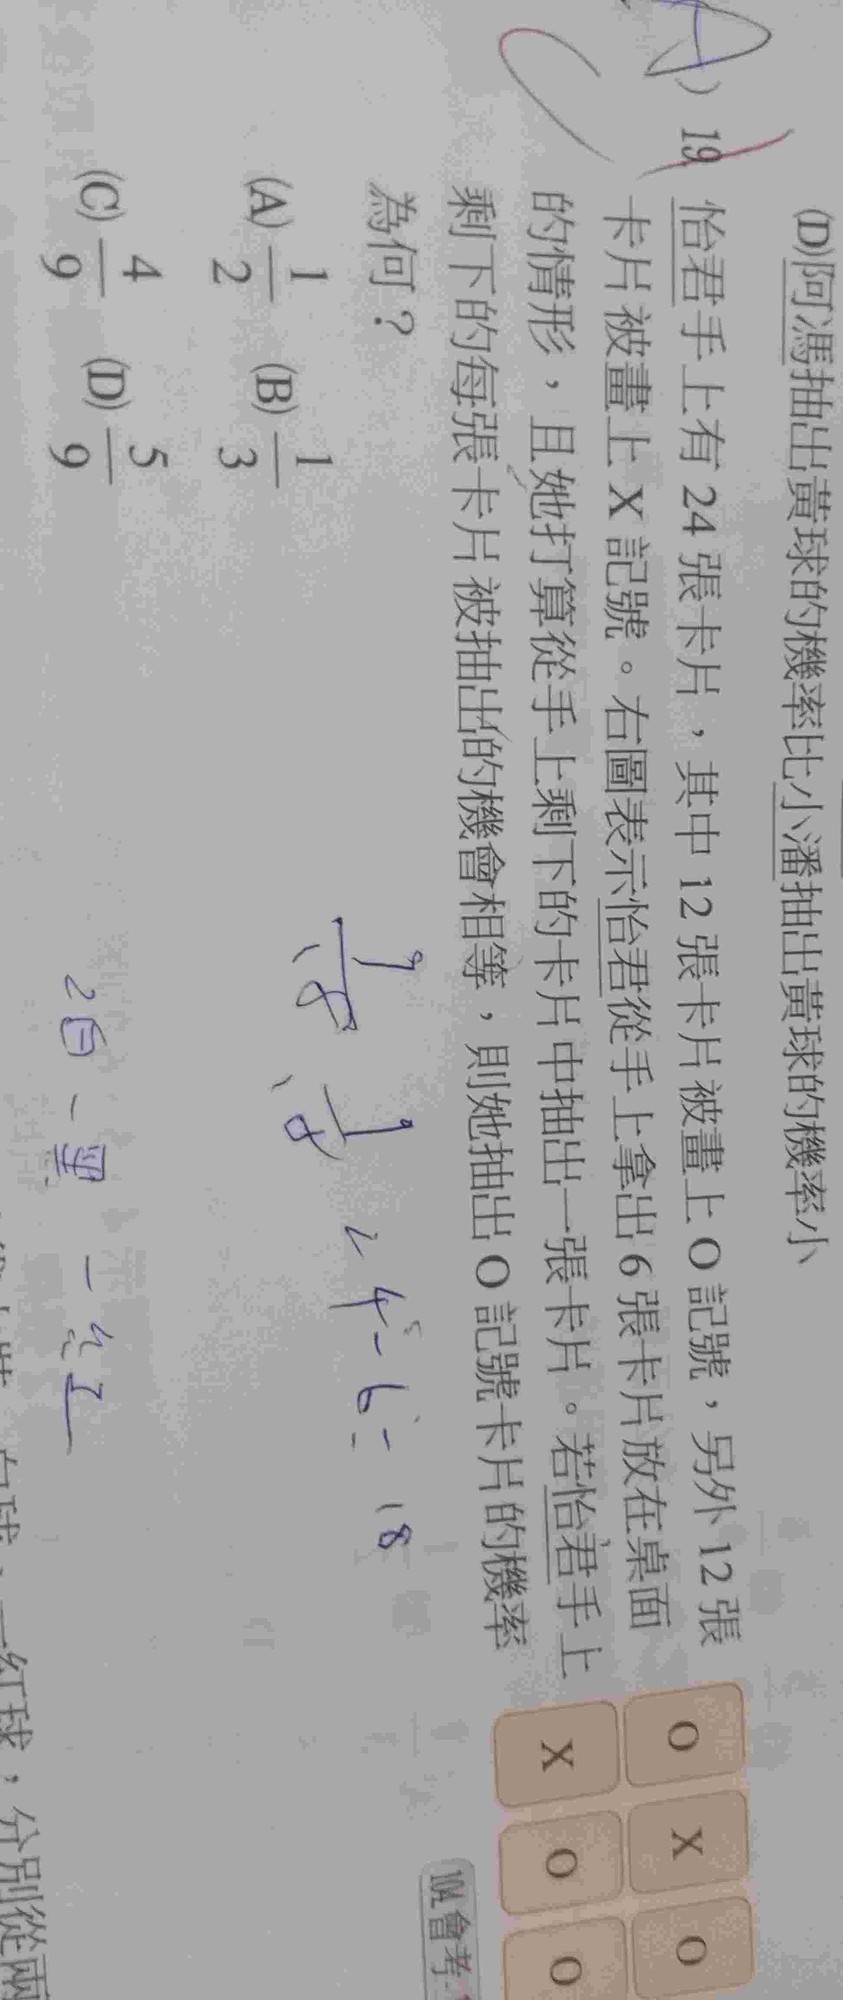 (D)阿馮抽出黃球的機率比小潘抽出黃球的機率小
A) 19. 怡君手上有 24 張卡片,其中 12 張卡片被畫上 O 記號,另外 12 張
卡片被畫上 X 記號。右圖表示怡君從手上拿出 6 張卡片放在桌面
的情形,且她打算從手上剩下的卡片中抽出一張卡片。若怡君手上
剩下的每張卡片被抽出的機會相等,則她抽出 O 記號卡片的機率
為何?
O X O
X O O
(A) 1/2 (B) 1/3
(C) 4/9 (D) 5/9
104 會考
24-6=18
紅球,分別從兩